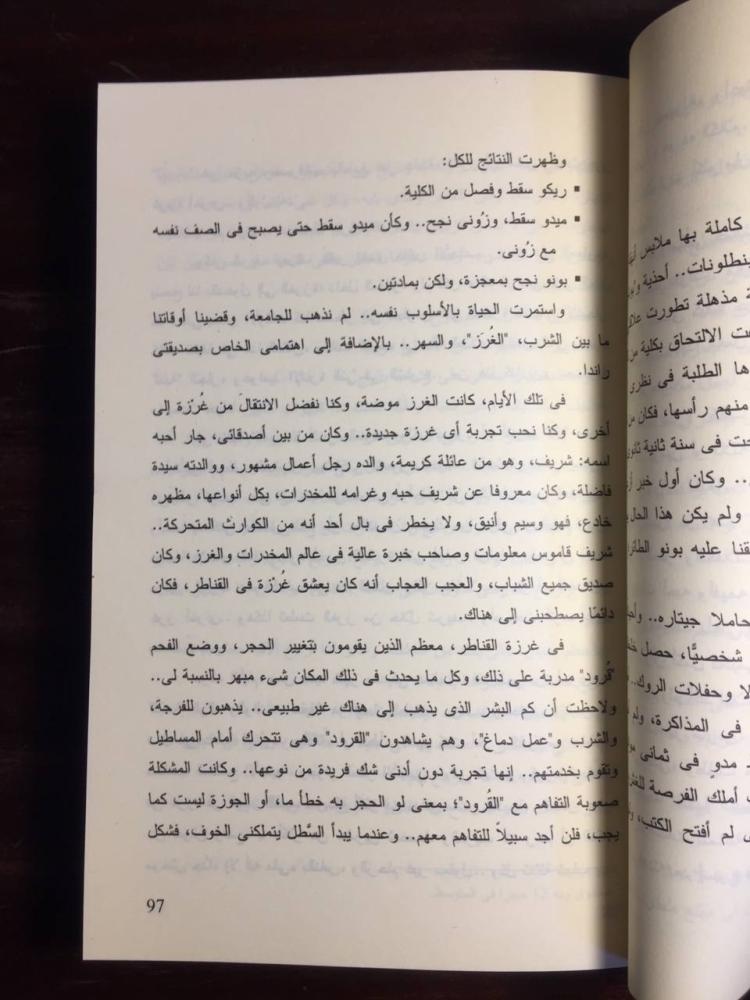 وظهرت النتائج للكل:
▪ ريكو سقط وفصل من الكلية.
▪ ميدو سقط، وزُونى نجح.. وكأن ميدو سقط حتى يصبح فى الصف نفسه
مع زُونى.
▪ بونو نجح بمعجزة، ولكن بمادتين.
واستمرت الحياة بالأسلوب نفسه.. لم نذهب للجامعة، وقضينا أوقاتنا
ما بين الشرب، "الغُرَز"، والسهر.. بالإضافة إلى اهتمامى الخاص بصديقتى
راندا.
فى تلك الأيام، كانت الغرز موضة، وكنا نفضل الانتقال من غُرْزة إلى
أخرى، وكنا نحب تجربة أى غرزة جديدة.. وكان من بين أصدقائى، جار أحبه
اسمه: شريف، وهو من عائلة كريمة، والده رجل أعمال مشهور، ووالدته سيدة
فاضلة، وكان معروفا عن شريف حبه وغرامه للمخدرات، بكل أنواعها، مظهره
خادع، فهو وسيم وأنيق، ولا يخطر فى بال أحد أنه من الكوارث المتحركة..
شريف قاموس معلومات وصاحب خبرة عالية فى عالم المخدرات والغرز، وكان
صديق جميع الشباب، والعجب العجاب أنه كان يعشق غُرْزة فى القناطر، فكان
دائمًا يصطحبنى إلى هناك.
فى غرزة القناطر، معظم الذين يقومون بتغيير الحجر، ووضع الفحم
"قُرود" مدربة على ذلك، وكل ما يحدث فى ذلك المكان شىء مبهر بالنسبة لى..
ولاحظت أن كم البشر الذى يذهب إلى هناك غير طبيعى.. يذهبون للفرجة،
والشرب و"عمل دماغ"، وهم يشاهدون "القرود" وهى تتحرك أمام المساطيل
وتقوم بخدمتهم.. إنها تجربة دون أدنى شك فريدة من نوعها.. وكانت المشكلة
صعوبة التفاهم مع "القُرود"؛ بمعنى لو الحجر به خطأ ما، أو الجوزة ليست كما
يجب، فلن أجد سبيلاً للتفاهم معهم.. وعندما يبدأ السَّطل يتملكنى الخوف، فشكل
97
كاملة بها ملابس
بنطلونات.. أحذية
مذهلة تطورت
الالتحاق بكلية من
الطلبة فى نظرى
منهم رأسها، فكان من
فى سنة ثانية ثانوى
.. وكان أول خبر
ولم يكن هذا الحال
عليه بونو
حاملا جيتاره..
شخصيًّا، حصل
وحفلات الروك..
فى المذاكرة، ولم
مدوٍ فى ثمانى
أملك الفرصة للغش
لم أفتح الكتب،